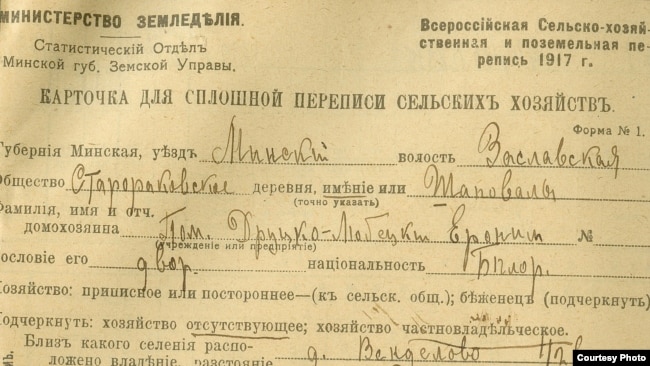 МИНИСТЕРСТВО ЗЕМЛЕДѢЛІЯ.
Статистическій Отдѣлъ
Минской губ. Земской Управы.
Всероссійская Сельско-хозяй-
ственная и поземельная пе-
репись 1917 г.
КАРТОЧКА ДЛЯ СПЛОШНОЙ ПЕРЕПИСИ СЕЛЬСКИХЪ ХОЗЯЙСТВЪ.
Форма № 1.
Губернія Минская, уѣздъ Минскій волость Заславская
Общество Старораковское деревня, имѣніе или Шаповалы
(точно указать)
Фамилія, имя и отч.
домохозяина Пом. Друцко-Любецкій Ероним №
(учрежденіе или предпріятіе)
Сословіе его двор. національность Бѣлор.
Хозяйство: приписное или постороннее—(къ сельск. общ.); бѣженецъ (подчеркнуть)
Подчеркнуть: хозяйство отсутствующее; хозяйство частновладѣльческое.
Близъ какого селенія распо-
ложено владѣніе, разстояніе д. Ванделово 1/2 в
Courtesy Photo